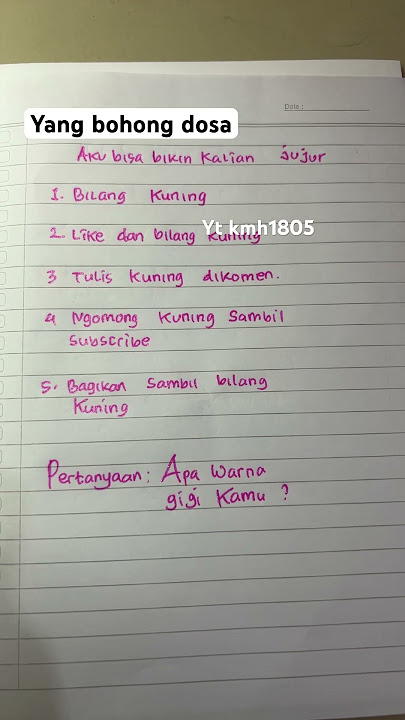 Date :
Yang bohong dosa
Aku bisa bikin kalian jujur
1. Bilang Kuning
2. Like dan bilang kuning
Yt kmh1805
3 Tulis Kuning dikomen.
4 Ngomong Kuning Sambil
Subscribe
5. Bagikan Sambil bilang
Kuning
Pertanyaan: Apa Warna
gigi Kamu ?